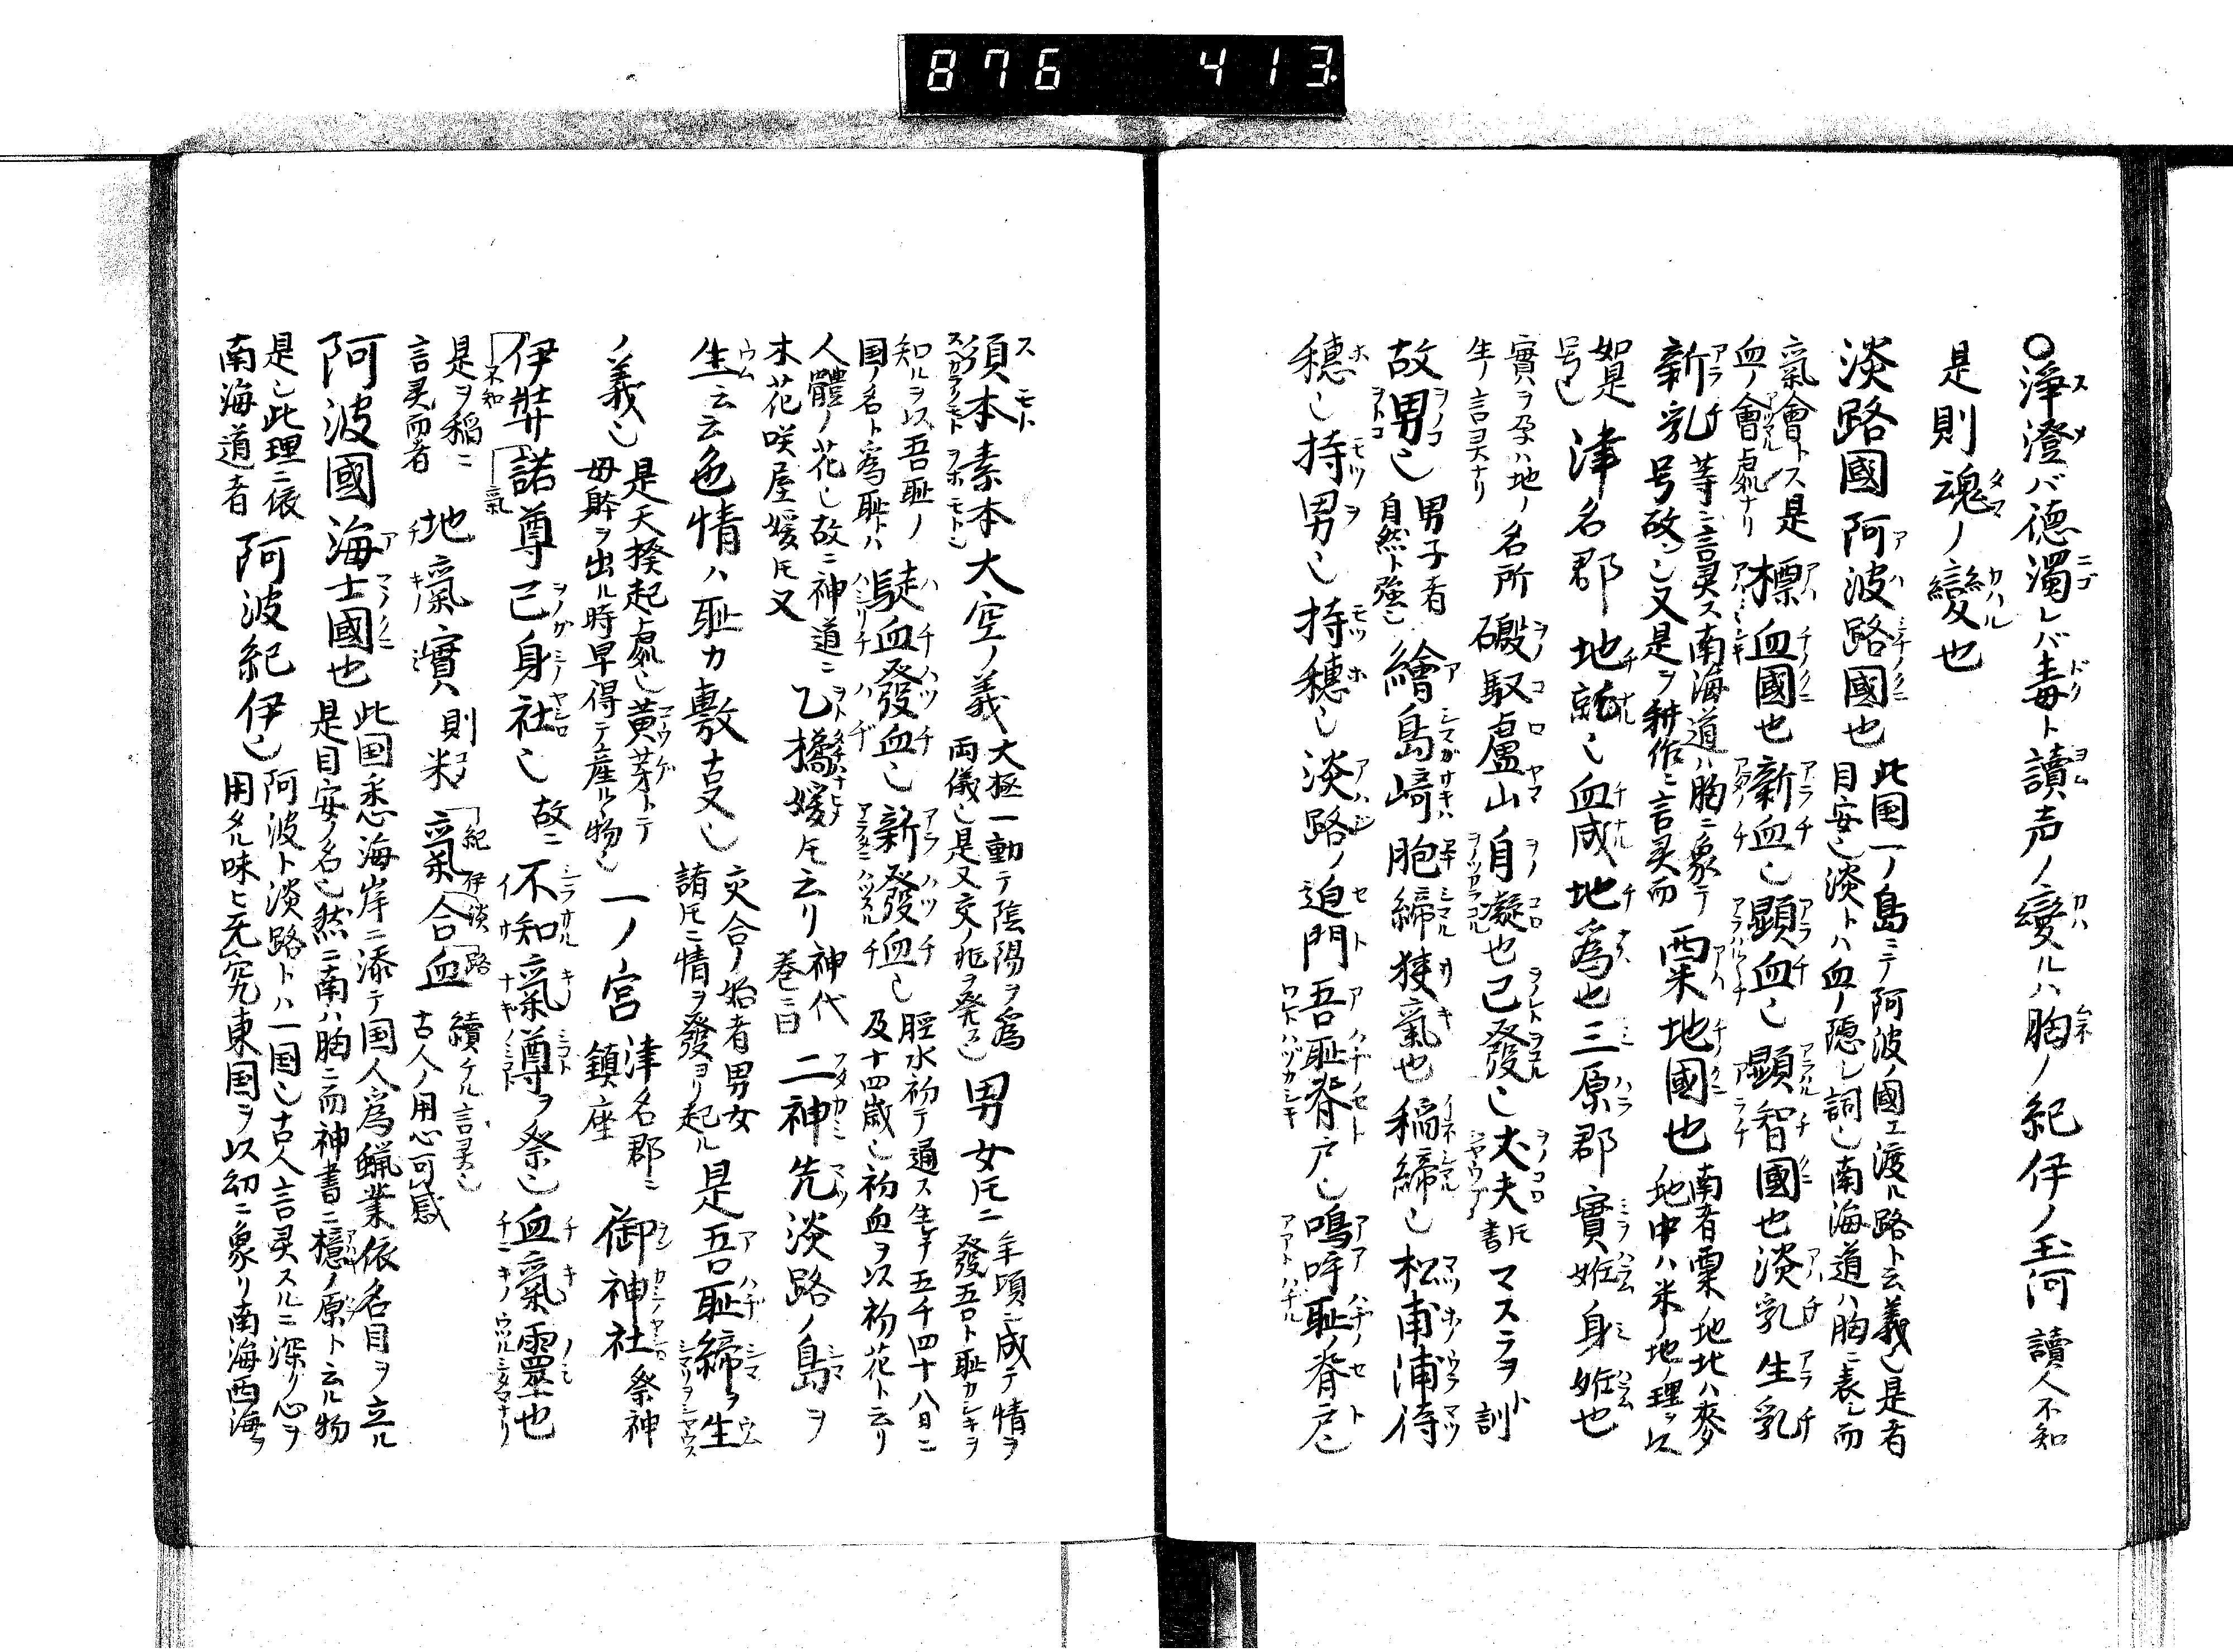 876 413
○淨澄バ德濁レバ毒ト讀声ノ變ルハ胸ノ紀伊ノ玉河 讀人不知
是則魂ノ變也
淡路國阿波路國也 此国一ノ島ニテ阿波ノ國エ渡ル路ト云義也是者
目安也淡トハ血ノ隠シ詞也南海道ハ胸ニ表シ而
氣會トス是
血ノ會處ナリ 標血國也新血也顕血也顕智國也淡乳生乳
新乳 等ニ言灵ス南海道ハ胸ニ象テ
号故也又是ヲ耕作ニ言灵而 粟地國也 南者粟地北ハ麥
地中ハ米ノ地ノ理ヲ以
如是
号也 津名郡地就也血成地爲也三原郡實妊身妊也
實ヲ孕ハ地ノ
生ノ言灵ナリ 名所磤馭盧山自凝也己發也丈夫 書 マスラヲ 訓
故男也 男子者
自然ト強也 繪島﨑胞締狹氣也稲締也松甫浦待
穗也持男也持穗也淡路ノ迫門吾耻脊戸也鳴呼耻ノ脊戸也
須本素本大空ノ義 大極一動テ陰陽ヲ爲
両儀也是又交ノ兆ヲ発ス也 男女 年頃ニ成テ情ヲ
發吾ト耻カシキヲ
知ルヲ以吾耻ノ
国ノ名ト爲耻トハ 血發血也新發血也 脛水初テ通ス生テ五千四十八日ニ
及十四歳也初血ヲ以初花ト云リ
人體ノ花也故ニ神道ニ
木花咲屋媛 又 乙橘媛 云リ 神代
巻ニ曰 二神先淡路ノ島ヲ
生云云色情ハ耻カ敷古叓也 交合ノ始者男女
諸 ニ情ヲ發ヨリ起ル 是吾耻締ヲ生
ノ義也 是天揆起處也黄芽トテ
母躰ヲ出ル時早得テ産ルヽ物也 一ノ宮 津名郡ニ
鎮座 御神社 祭神
伊弉諾尊己身社也 故ニ 不知氣尊ヲ祭也血氣靈也
是ヲ稲ニ
言灵而者 地氣實 則米 氣合血 續ケル言灵也
古人ノ用心可感
阿波國海士國也 此国悉海岸ニ添テ国人爲蝋業依名目ヲ立ル
是目安ノ名也然ニ南ハ胸ニ而神書ニ檍ノ原ト云ル物
是也此理ニ依
南海道者 阿波紀伊也 阿波ト淡路トハ一国也古人言灵スルニ深ク心ヲ
用タル味ヒ无究東国ヲ以幼ニ象リ南海西海ヲ